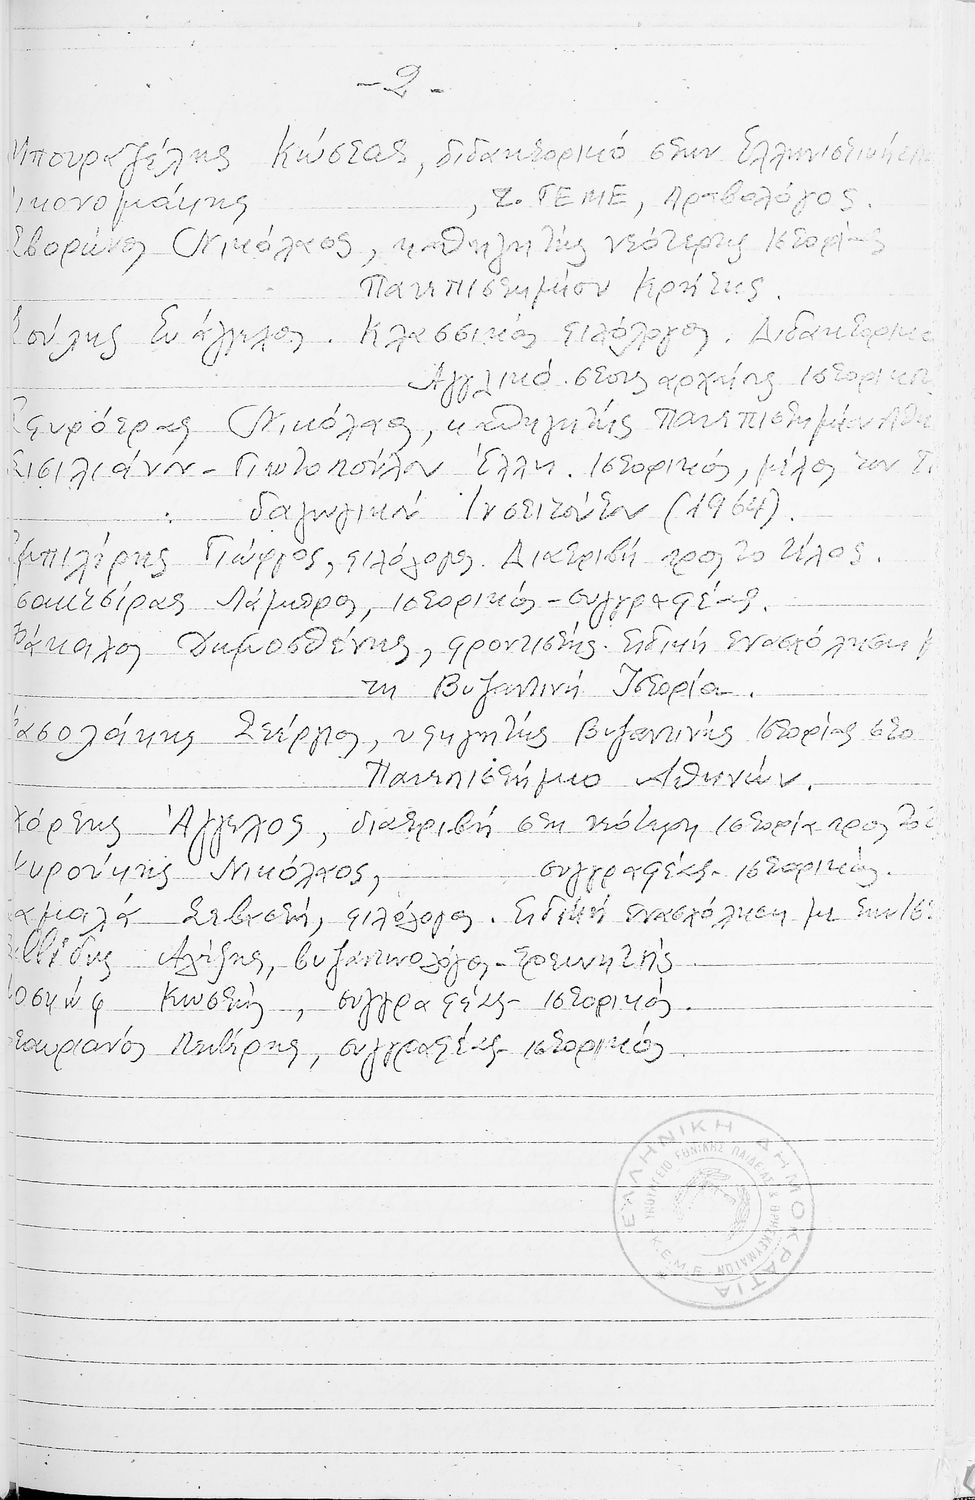 - 2 -
Μπουραζέλης Κώστας, διδακτορικό στην Ελληνιστική
ικονομάκης , τ. ΓΕΜΕ, Αραβολόγος.
Σβορώνος Νικόλαος, καθηγητής νεότερης Ιστορίας
Πανεπιστημίου Κρήτης.
Σούλης Ευάγγελος. Κλασσικός φιλόλογος. Διδακτορικό
Αγγλικό στους αρχαίους ιστορικού
Νικόλαος, καθηγητής Πανεπιστημίου Αθη
Σισιλιάνου - Γιωτοπούλου Έλλη. Ιστορικός, μέλος του Π
δαγωγικού Ινστιτούτου (1964).
Γιώργος, φιλόλογος. Διατριβή προς το τέλος.
Λάμπρος, ιστορικός - συγγραφέας.
Δημοσθένης, φροντιστής. Ειδική ενασχόληση μ
τη Βυζαντινή Ιστορία.
ασολάκης Στέργιος, υφηγητής Βυζαντινής Ιστορίας στο
Πανεπιστήμιο Αθηνών.
χόρτης Άγγελος, διατριβή στη νεότερη ιστορία προς το τ
Νικόλαος, συγγραφέας - ιστορικός.
αμαλά Σεβαστή, φιλόλογος. Ειδική ενασχόληση με την Ισ
Αλέξης, βυζαντινολόγος - Ερευνητής
οσκώφ Κωστής, συγγραφέας - ιστορικός.
ταυριανός Λευτέρης, συγγραφέας - ιστορικός.
ΕΛΛΗΝΙΚΗ ΔΗΜΟΚΡΑΤΙΑ
ΥΠΟΥΡΓΕΙΟ ΕΘΝΙΚΗΣ ΠΑΙΔΕΙΑΣ & ΘΡΗΣΚΕΥΜΑΤΩΝ
Κ.Ε.Μ.Ε.